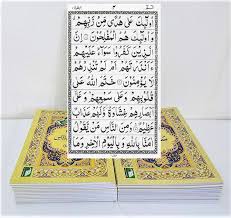 اُولٰٓئِكَ عَلٰى هُدًى مِّنْ رَّبِّهِمْ
وَاُولٰٓئِكَ هُمُ الْمُفْلِحُوْنَ اِنَّ
الَّذِيْنَ كَفَرُوْا سَوَآءٌ عَلَيْهِمْ
ءَاَنْذَرْتَهُمْ اَمْ لَمْ تُنْذِرْهُمْ
لَا يُؤْمِنُوْنَ خَتَمَ اللّٰهُ عَلٰى
قُلُوْبِهِمْ وَعَلٰى سَمْعِهِمْ وَعَلٰٓى
اَبْصَارِهِمْ غِشَاوَةٌ وَّلَهُمْ عَذَابٌ
عَظِيْمٌ وَمِنَ النَّاسِ مَنْ يَّقُوْلُ
اٰمَنَّا بِاللّٰهِ وَبِالْيَوْمِ الْاٰخِرِ وَمَا